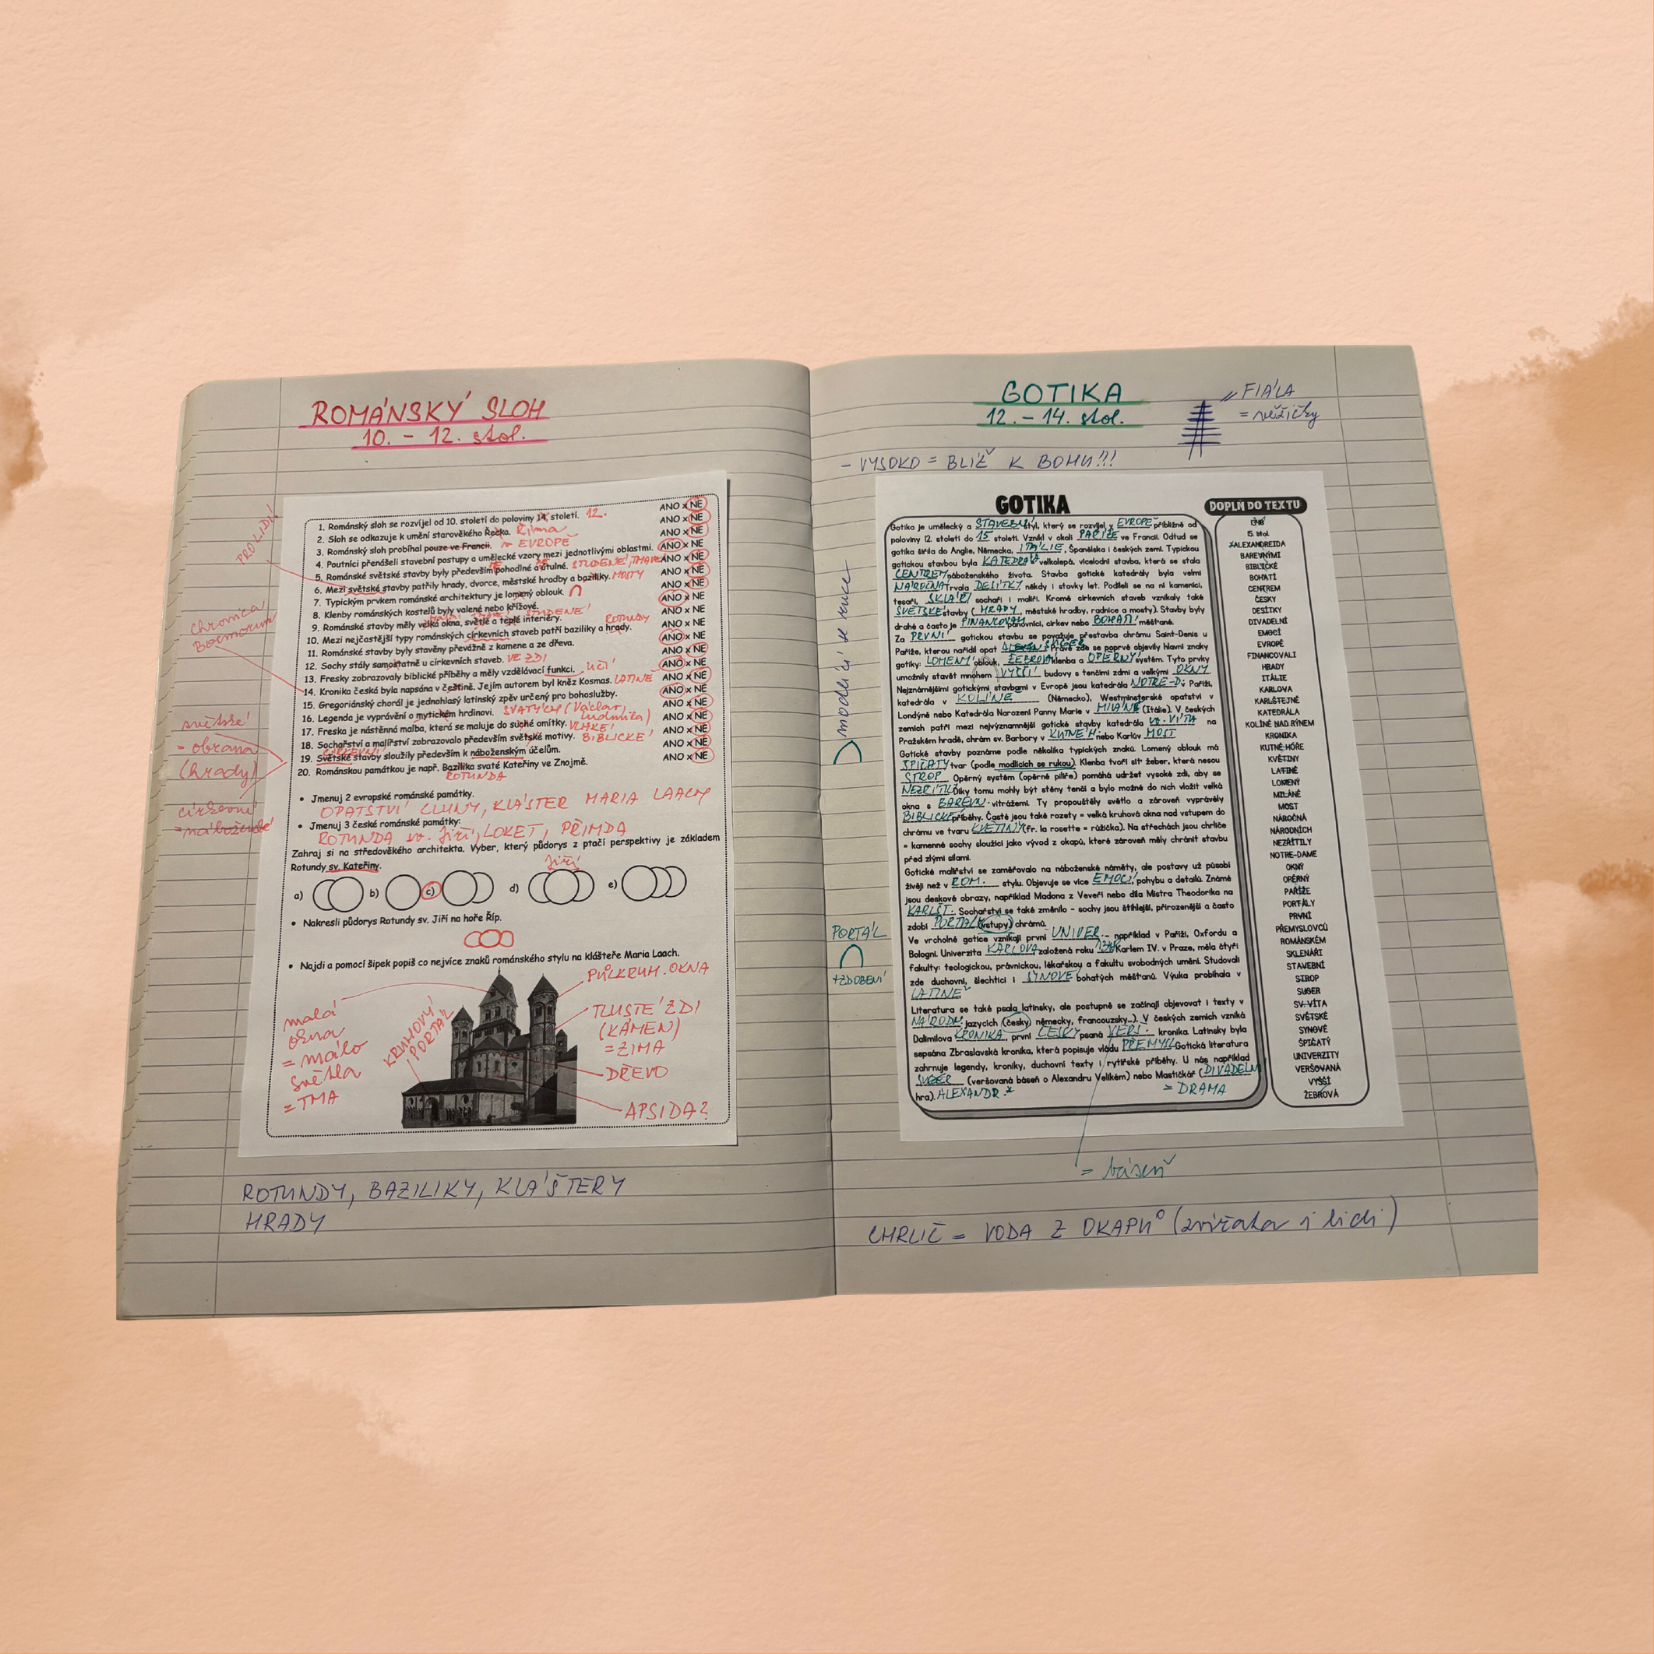 ROMÁNSKÝ SLOH
10. - 12. stol.
PRO LIDI
světské
- obrana
(hrady)
církevní
ANO x NE
1. Románský sloh se rozvíjel od 10. století do poloviny 14. století. 12.
2. Sloh se odkazuje k umění starověkého Řecka. Říma
3. Románský sloh probíhal pouze ve Francii. v EVROPĚ
4. Poutníci přenášeli stavební postupy a umělecké vzory mezi jednotlivými oblastmi.
5. Románské světské stavby byly především pohodlné a útulné. STUDENÉ, TMAVÉ
6. Mezi světské stavby patřily hrady, dvorce, městské hradby a baziliky. MOSTY
7. Typickým prvkem románské architektury je lomený oblouk
8. Klenby románských kostelů byly valené nebo křížové.
9. Románské stavby měly velká okna, světlé a teplé interiéry. STUDENÉ
10. Mezi nejčastější typy románských církevních staveb patří baziliky a hrady. ROTUNDY
11. Románské stavby byly stavěny převážně z kamene a ze dřeva.
12. Sochy stály samostatně u církevních staveb. VE ZDI
13. Fresky zobrazovaly biblické příběhy a měly vzdělávací funkci. UČÍ
14. Kronika česká byla napsána v češtině. Jejím autorem byl kněz Kosmas. LATINĚ
15. Gregoriánský chorál je jednohlasý latinský zpěv určený pro bohoslužby.
16. Legenda je vyprávění o mytickém hrdinovi. SVATÝCH (Václav, Ludmila)
17. Freska je nástěnná malba, která se maluje do suché omítky. VLHKÉ
18. Sochařství a malířství zobrazovalo především světské motivy. BIBLICKÉ
19. Světské stavby sloužily především k náboženským účelům.
20. Románskou památkou je např. Bazilika svaté Kateřiny ve Znojmě.
ROTUNDA
• Jmenuj 2 evropské románské památky.
OPATSTVÍ CLUNY, KLÁŠTER MARIA LAACH
• Jmenuj 3 české románské památky:
ROTUNDA sv. Jiří, LOKET, PŘIMDA
Zahraj si na středověkého architekta. Vyber, který půdorys z ptačí perspektivy je základem
Rotundy sv. Kateřiny.
Jiří
a) b) c) d) e)
• Nakresli půdorys Rotundy sv. Jiří na hoře Říp.
• Najdi a pomocí šipek popiš co nejvíce znaků románského stylu na klášteře Maria Laach.
malá
okna
= málo
světla
= TMA
KRUHOVÝ
PORTÁL
PŮLKRUH. OKNA
TLUSTÉ ZDI
(KÁMEN)
= ZIMA
DŘEVO
APSIDA?
ROTUNDY, BAZILIKY, KLÁŠTERY
HRADY
GOTIKA
12. - 14. stol.
FIÁLA
= věžičky
- VYSOKO = BLÍŽ K BOHU!!!
modlící se ruce
PORTÁL
+ZDOBENÍ
GOTIKA
Gotika je umělecký a STAVEBNÍ styl, který se rozvíjel v EVROPĚ přibližně od
poloviny 12. století do 15 století. Vznikl v okolí PAŘÍŽE ve Francii. Odtud se
gotika šířila do Anglie, Německa, ITÁLIE, Španělska i českých zemí. Typickou
gotickou stavbou byla KATEDRÁLA velkolepá, vícelodní stavba, která se stala
CENTREM náboženského života. Stavba gotické katedrály byla velmi
NÁROČNÁ trvala DESÍTKY někdy i stovky let. Podíleli se na ní kameníci,
tesaři, SKLÁŘI sochaři i malíři. Kromě církevních staveb vznikaly také
SVĚTSKÉ stavby (HRADY, městské hradby, radnice a mosty). Stavby byly
drahé a často je FINANCOVALI panovníci, církev nebo BOHATÍ měšťané.
Za PRVNÍ gotickou stavbu se považuje přestavba chrámu Saint-Denis u
Paříže, kterou nařídil opat SUGER Právě zde se poprvé objevily hlavní znaky
gotiky: LOMENÝ oblouk, ŽEBROVÁ klenba a OPĚRNÝ systém. Tyto prvky
umožnily stavět mnohem VYŠŠÍ budovy s tenčími zdmi a velkými OKNY
Nejznámějšími gotickými stavbami v Evropě jsou katedrála NOTRE-D. v Paříži,
katedrála v KOLÍNĚ (Německo), Westminsterské opatství v
Londýně nebo Katedrála Narození Panny Marie v MILÁNĚ (Itálie). V českých
zemích patří mezi nejvýznamnější gotické stavby katedrála sv. VÍTA na
Pražském hradě, chrám sv. Barbory v KUTNÉ H. nebo Karlův MOST
Gotické stavby poznáme podle několika typických znaků. Lomený oblouk má
ŠPIČATÝ tvar (podle modlících se rukou). Klenba tvoří síť žeber, která nesou
STROP Opěrný systém (opěrné pilíře) pomáhá udržet vysoké zdi, aby se
NEZŘÍTILY Díky tomu mohly být stěny tenčí a bylo možné do nich vložit velká
okna s BAREVN. vitrážemi. Ty propouštěly světlo a zároveň vyprávěly
BIBLICKÉ příběhy. Časté jsou také rozety = velká kruhová okna nad vstupem do
chrámu ve tvaru KVĚTINY (fr. la rosette = růžička). Na střechách jsou chrliče
= kamenné sochy sloužící jako vývod z okapů, které zároveň měly chránit stavbu
před zlými silami.
Gotické malířství se zaměřovalo na náboženské náměty, ale postavy už působí
živěji než v ROM. stylu. Objevuje se více EMOCÍ, pohybu a detailů. Známé
jsou deskové obrazy, například Madona z Veveří nebo díla Mistra Theodorika na
KARLŠT. Sochařství se také změnilo - sochy jsou štíhlejší, přirozenější a často
zdobí PORTÁLY (vstupy) chrámů.
Ve vrcholné gotice vznikají první UNIVER. například v Paříži, Oxfordu a
Bologni. Univerzita KARLOVA založená roku 1348 Karlem IV. v Praze, měla čtyři
fakulty: teologickou, právnickou, lékařskou a fakultu svobodných umění. Studovali
zde duchovní, šlechtici i SYNOVÉ bohatých měšťanů. Výuka probíhala v
LATINĚ
Literatura se také psala latinsky, ale postupně se začínají objevovat i texty v
NÁRODN. jazycích (česky, německy, francouzsky...). V českých zemích vzniká
Dalimilova KRONIKA, první ČESKY psaná VERŠ. kronika. Latinsky byla
sepsána Zbraslavská kronika, která popisuje vládu PŘEMYSL. Gotická literatura
zahrnuje legendy, kroniky, duchovní texty i rytířské příběhy. U nás například
(veršovaná báseň o Alexandru Velikém) nebo Mastičkář (DIVADELNÍ
hra). ALEXANDR.* = DRAMA
DOPLŇ DO TEXTU
1348
15. stol.
*ALEXANDREIDA
BAREVNÝMI
BIBLICKÉ
BOHATÍ
CENTREM
ČESKY
DESÍTKY
DIVADELNÍ
EMOCÍ
EVROPĚ
FINANCOVALI
HRADY
ITÁLIE
KARLOVA
KARLŠTEJNĚ
KATEDRÁLA
KOLÍNĚ NAD RÝNEM
KRONIKA
KUTNÉ HOŘE
KVĚTINY
LATINĚ
LOMENÝ
MILÁNĚ
MOST
NÁROČNÁ
NÁRODNÍCH
NEZŘÍTILY
NOTRE-DAME
OKNY
OPĚRNÝ
PAŘÍŽE
PORTÁLY
PRVNÍ
PŘEMYSLOVCŮ
ROMÁNSKÉM
SKLENÁŘI
STAVEBNÍ
STROP
SUGER
SV. VÍTA
SVĚTSKÉ
SYNOVÉ
ŠPIČATÝ
UNIVERZITY
VERŠOVANÁ
VYŠŠÍ
ŽEBROVÁ
= báseň
CHRLIČ = VODA Z OKAPŮ (zvířata i lidi)